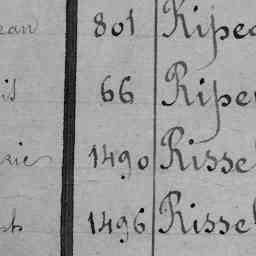 ean 801 Ripea
is 66 Riper
rie 1490 Risse
1496 Risse